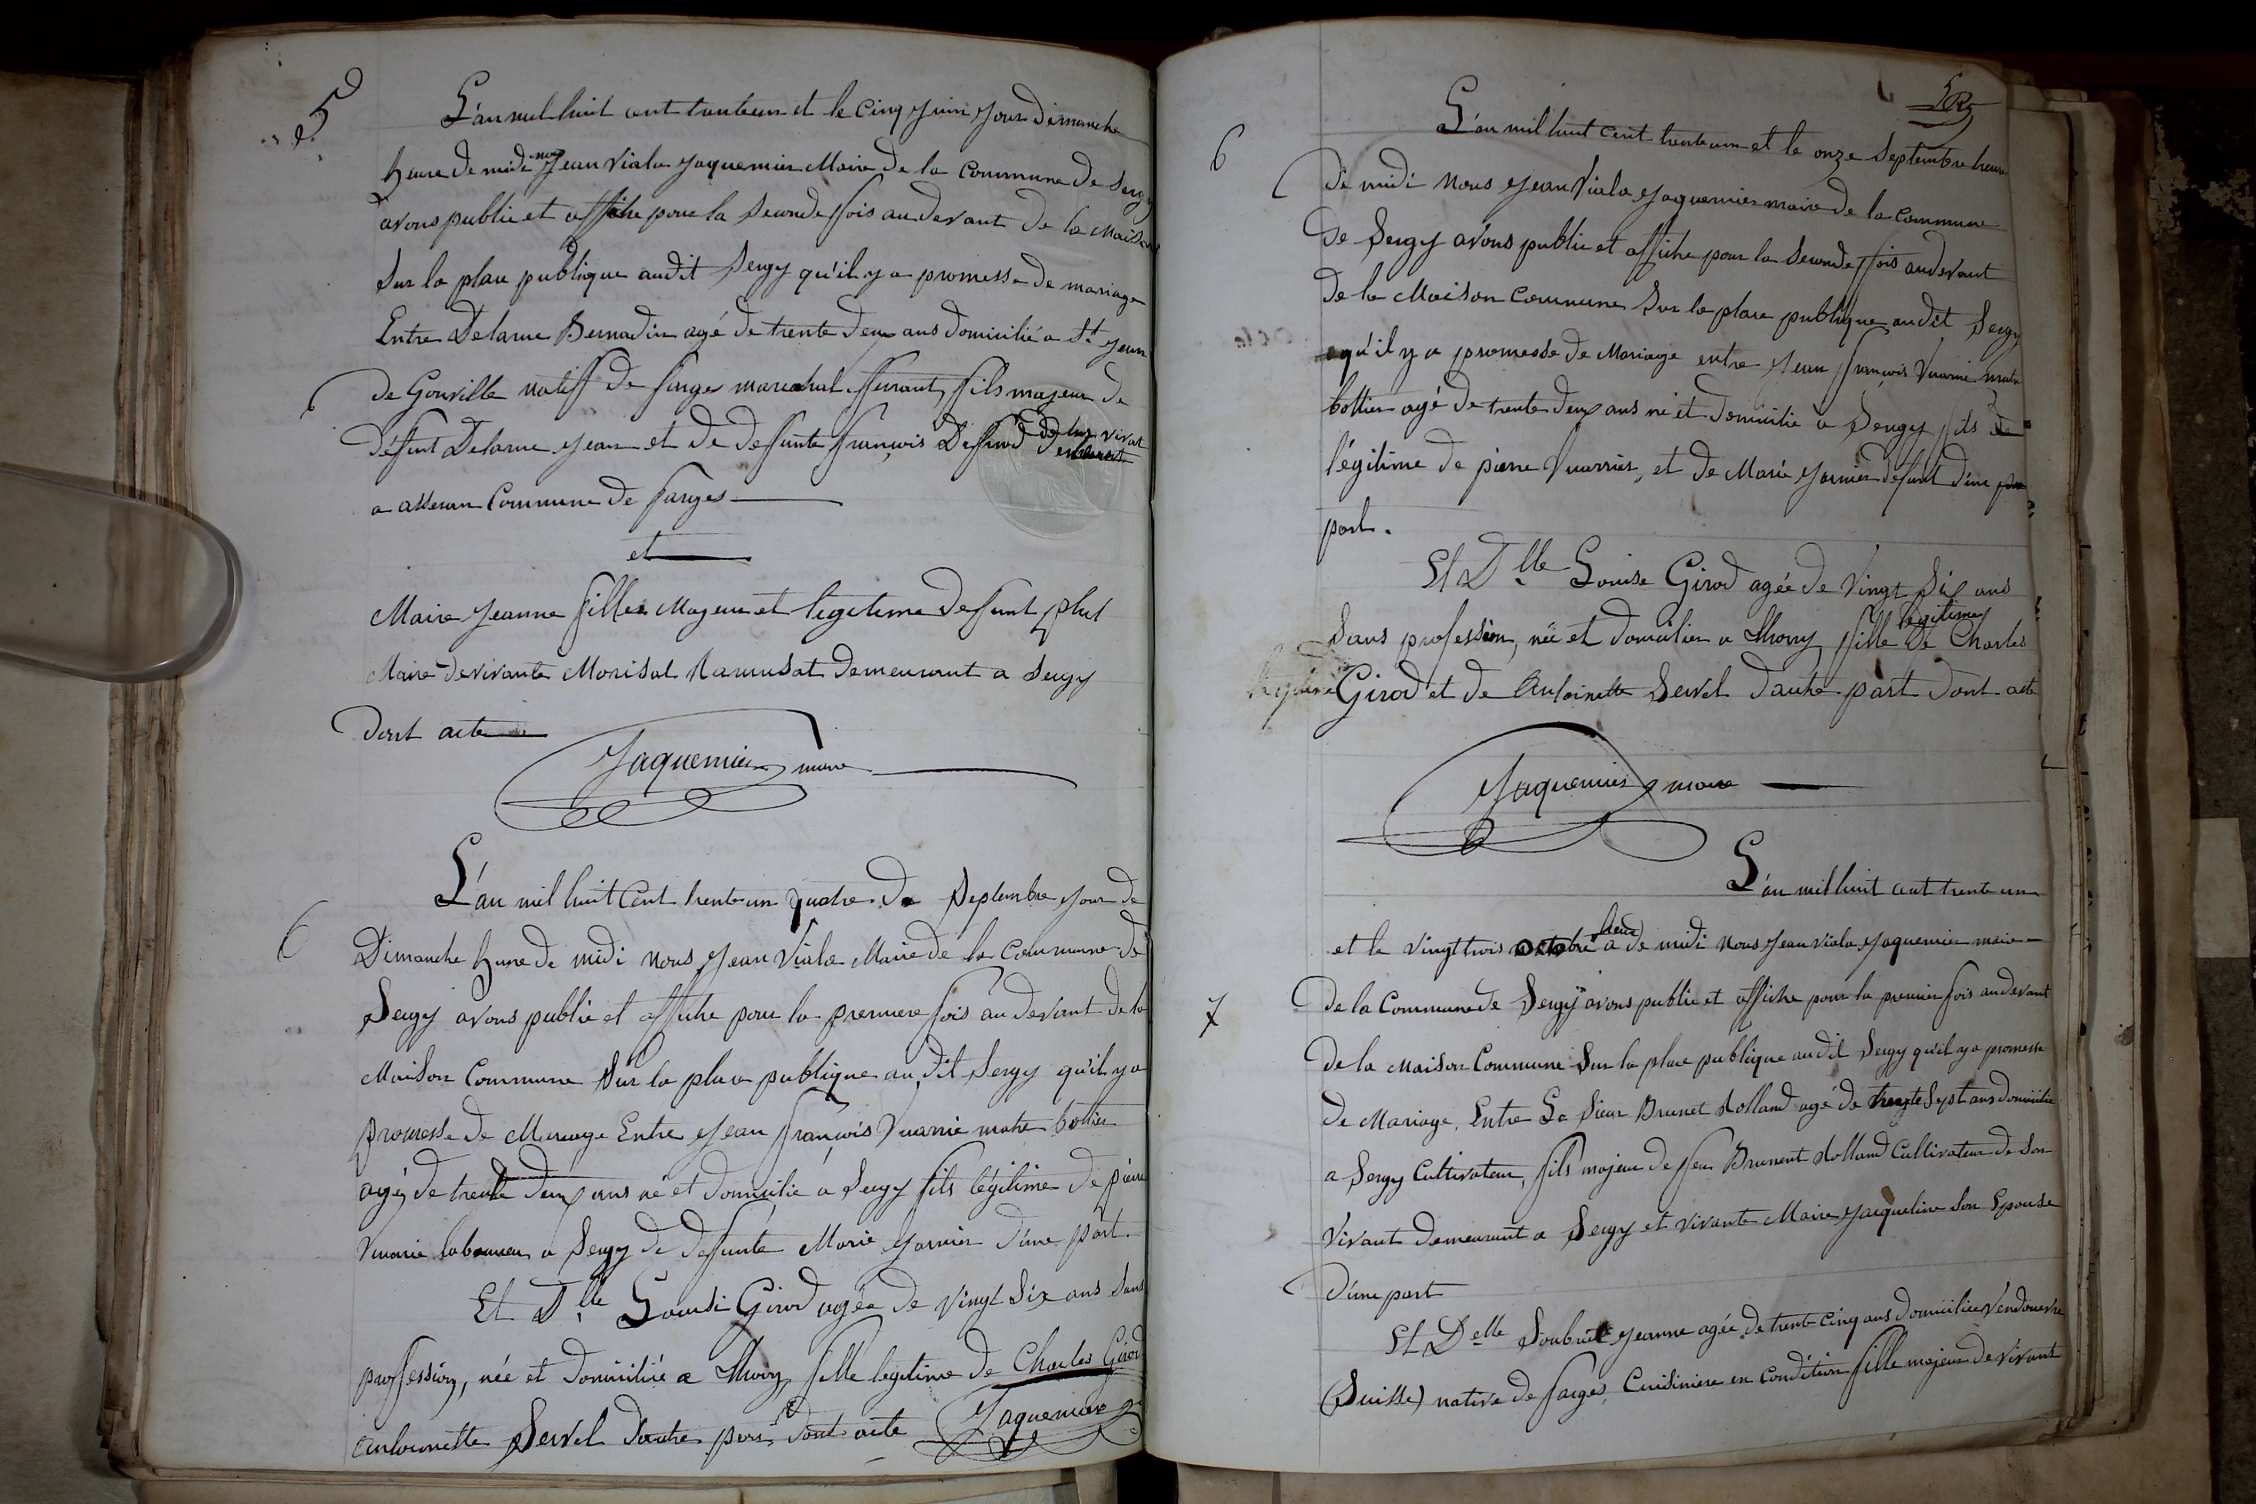 5
L'an mil huit cent trente un et le cinq juin jour Dimanche
heure de midi nous Jean Viala Jaquemier Maire de la Commune de Sergy
avons publie et affiche pour la Seconde fois au devant de la Maison
Sur la place publique audit Sergy qu'il y a promesse de mariage
Entre Delarue Bernadin agé de trente deux ans domicilié a St Jean
de Gonville natif de farges marechal ferrant, fils majeur de
défunt Delarue Jean et de defunte françois de leur vivat
a asserans Commune de farges
et
Marie Jeanne fille Majeur et legitime defunt
Marie de vivante demeurant a Sergy
dont acte
Jaquemier maire
6
L'an mil huit Cent trente un quatre De Septembre jour de
Dimanche heure de midi nous Jean Viala Maire de la Commune de
Sergy avons publie et affiche pour la premiere fois au devant de la
Maison Commune Sur la place publique au dit Sergy qu'il y a
promesse de Mariage Entre Jean françois Vuarnie maitre bottier
agé de trente deux ans né et domicilié a Sergy fils légitime de pierre
Vuarnie laboureur a Sergy de defunte Marie Garnier d'une part.
Et Dlle Louise Girod agée de vingt Six ans Sans
profession, née et domiciliée a Thoiry fille legitime de Charles Girod
antoinette Servel dautre part dont acte Jaquemier
6
L'an mil huit cent trente un et le onze Septembre heure
de midi nous Jean Viala Jaquemier maire de la commune
de Sergy avons publie et affiche pour la Seconde fois au devant
de la Maison Commune Sur la place publique audit Sergy
qu'il y a promesse de Mariage entre Jean françois Vuarnie maitre
bottier agé de trente deux ans né et domicilie a Sergy fils
légitime de pierre Vuarnier, et de Marie Garnier defunt d'une
part.
Et Dlle Louise Girod agée de Vingt Six ans
légitime
Sans profession, née et domiciliée a Thoiry fille de Charles
Girod et de Antoinette Servel dautre part dont acte
Jaquemier maire
L'an mil huit cent trente un
heure
et le vingt trois octobre a de midi nous Jean Viala Jaquemier maire
7
de la Commune de Sergy avons publie et affiche pour la premier fois au devant
de la Maison Commune Sur la place publique audit Sergy qu'il y a promesse
de Mariage, Entre Le Sieur Brunet Rolland agé de trente Sept ans domicilie
a Sergy Cultivateur, fils majeur de feu Brunent Rolland Cultivateur de Son
Vivant demeurant a Sergy et vivante Marie Jacqueline Son Epouse
d'une part
Et Delle Jeanne agée de trente cinq ans domiciliee Vendouvre
(Suisse) native de farges, Cuisiniere en condition fille majeur de vivant